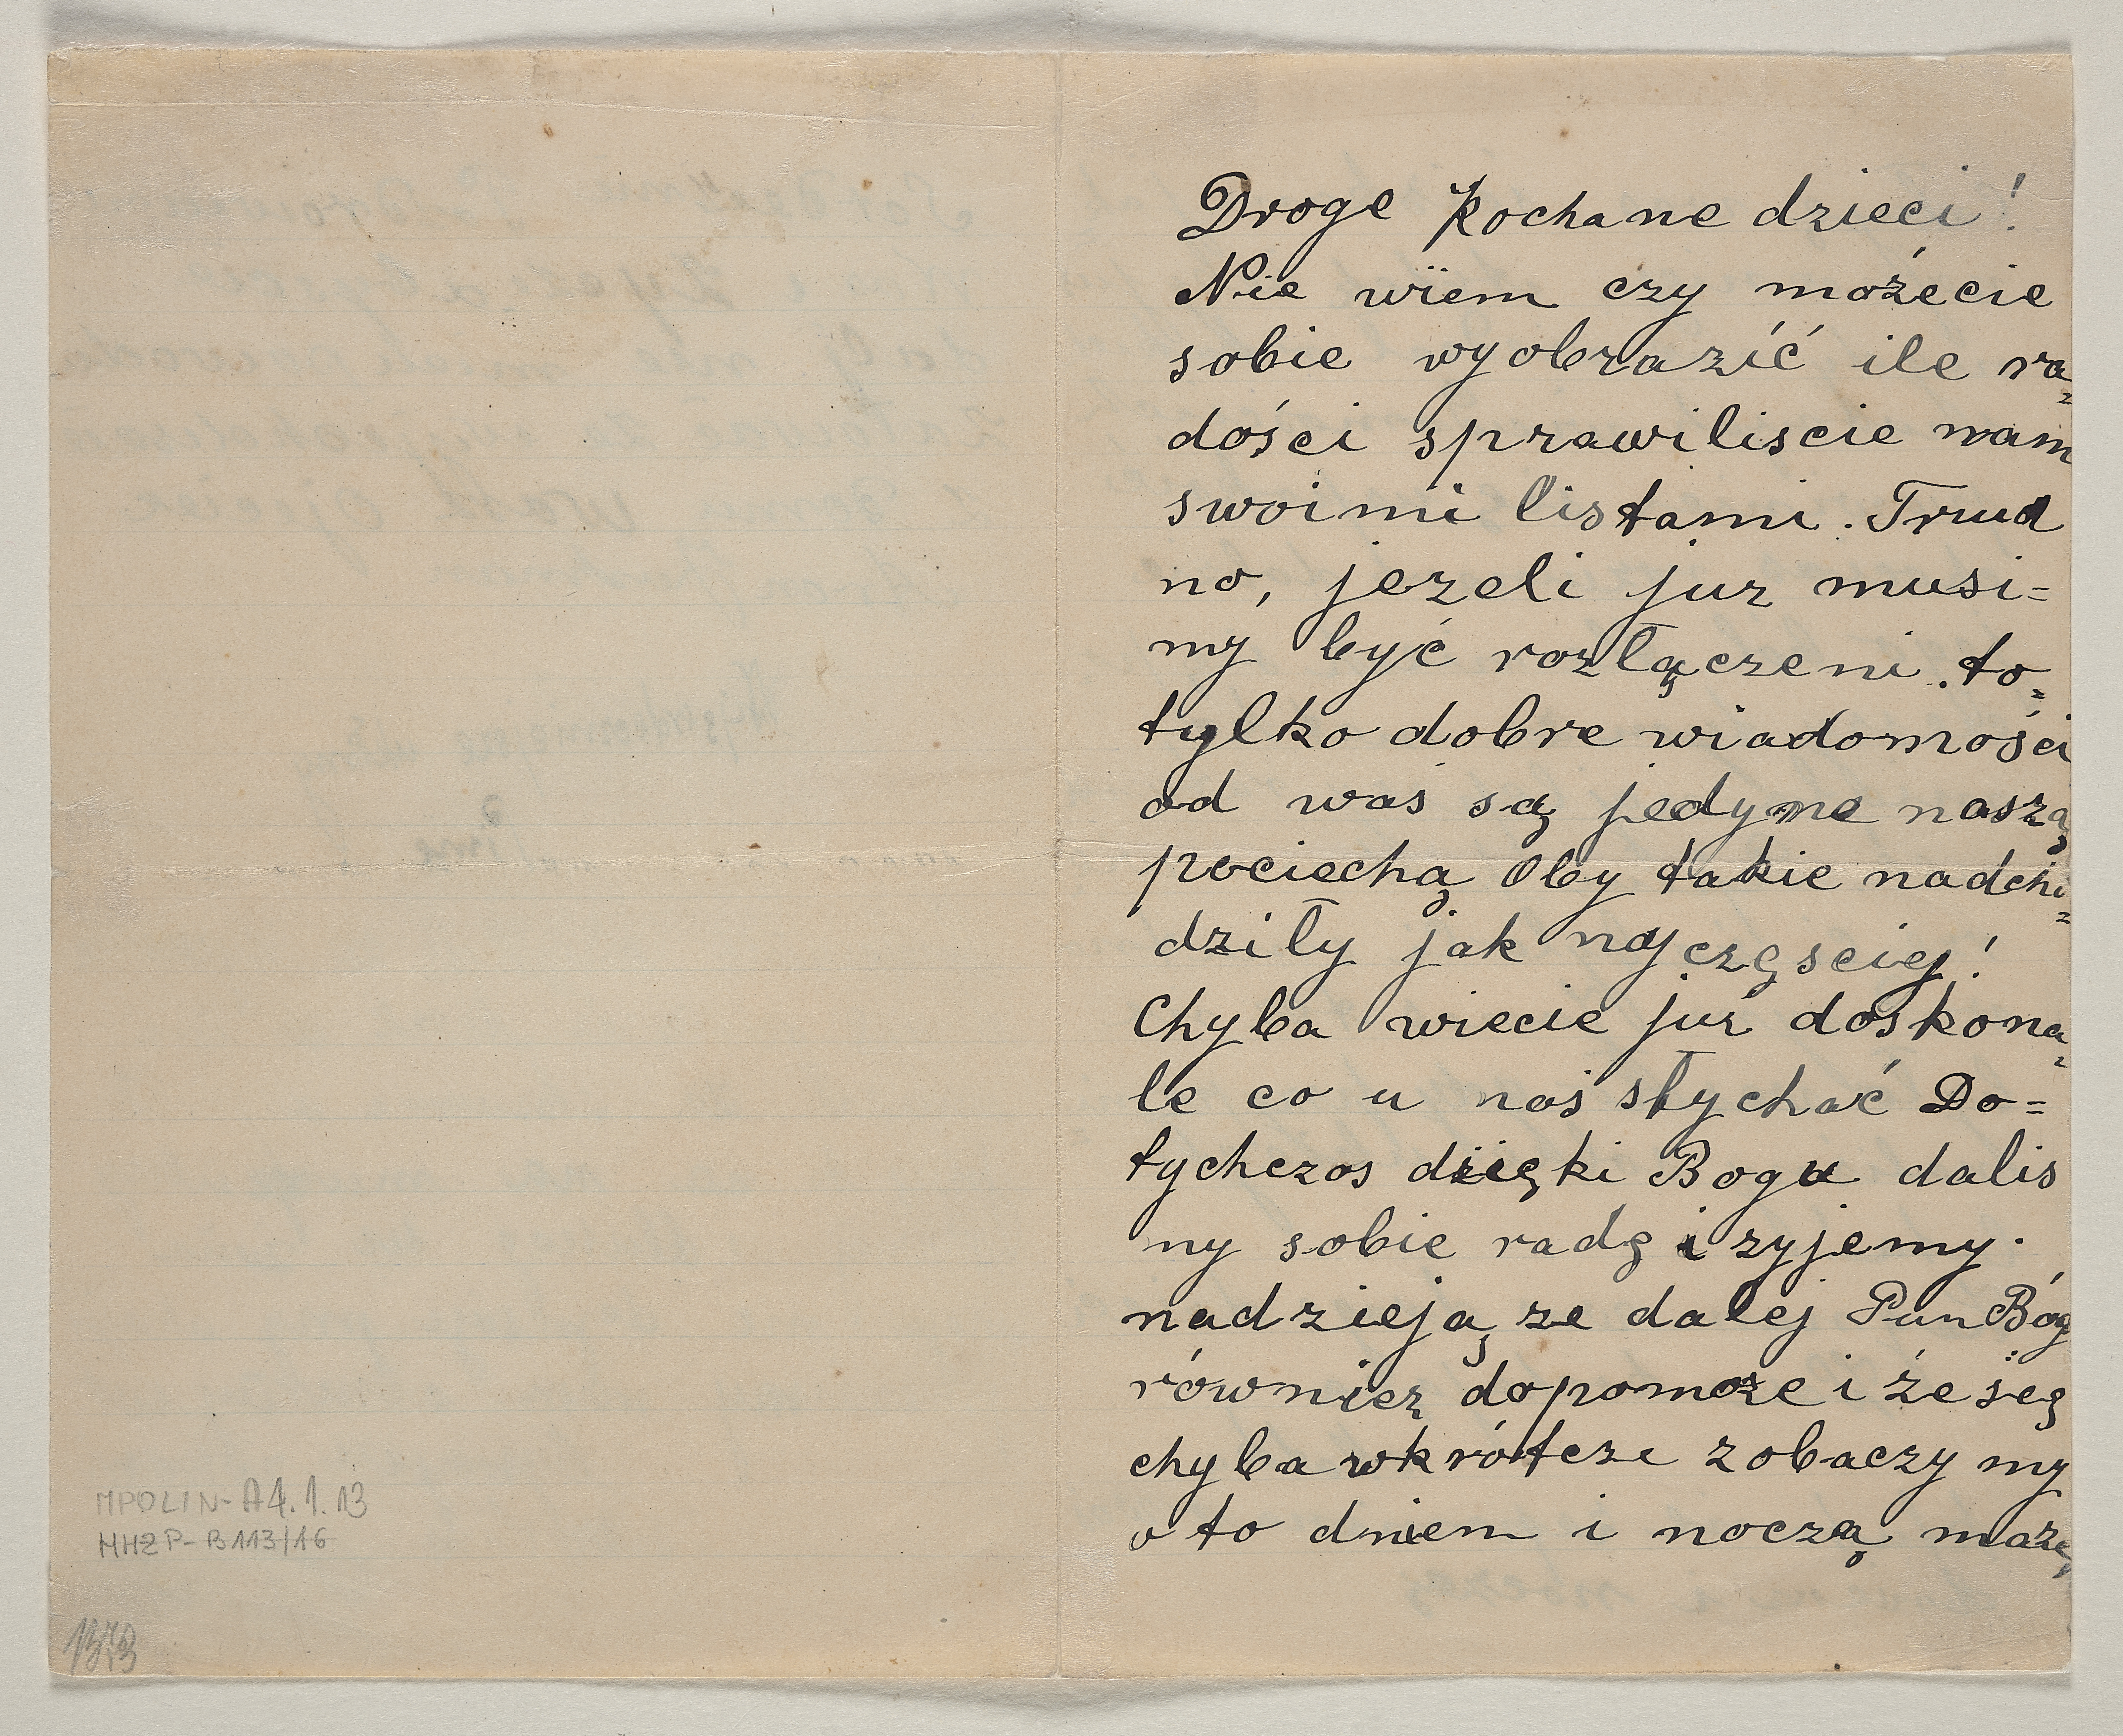 MPOLIN-A4.1.13
MHŻP-B113/16
Droge Kochane dzieci!
Nie wiem czy możecie
sobie wyobrazić ile ra=
dości sprawiliscie nam
swoimi listami. Trud
no, jezeli juz musi=
my być rozłączeni. to=
tylko dobre wiadomości
od was są jedyne naszą
pociechą Oby takie nadcho=
dziły jak najczęsciej!
Chyba wiecie juź doskona=
le co u nas słychać Do=
tychczas dzięki Bogu dalis
my sobie radę i zyjemy.
nadzieją ze dalej Pan Bóg
równiez dopomoze i że się
chyba wkrótcze zobaczymy
o to dniem i noczą marzę